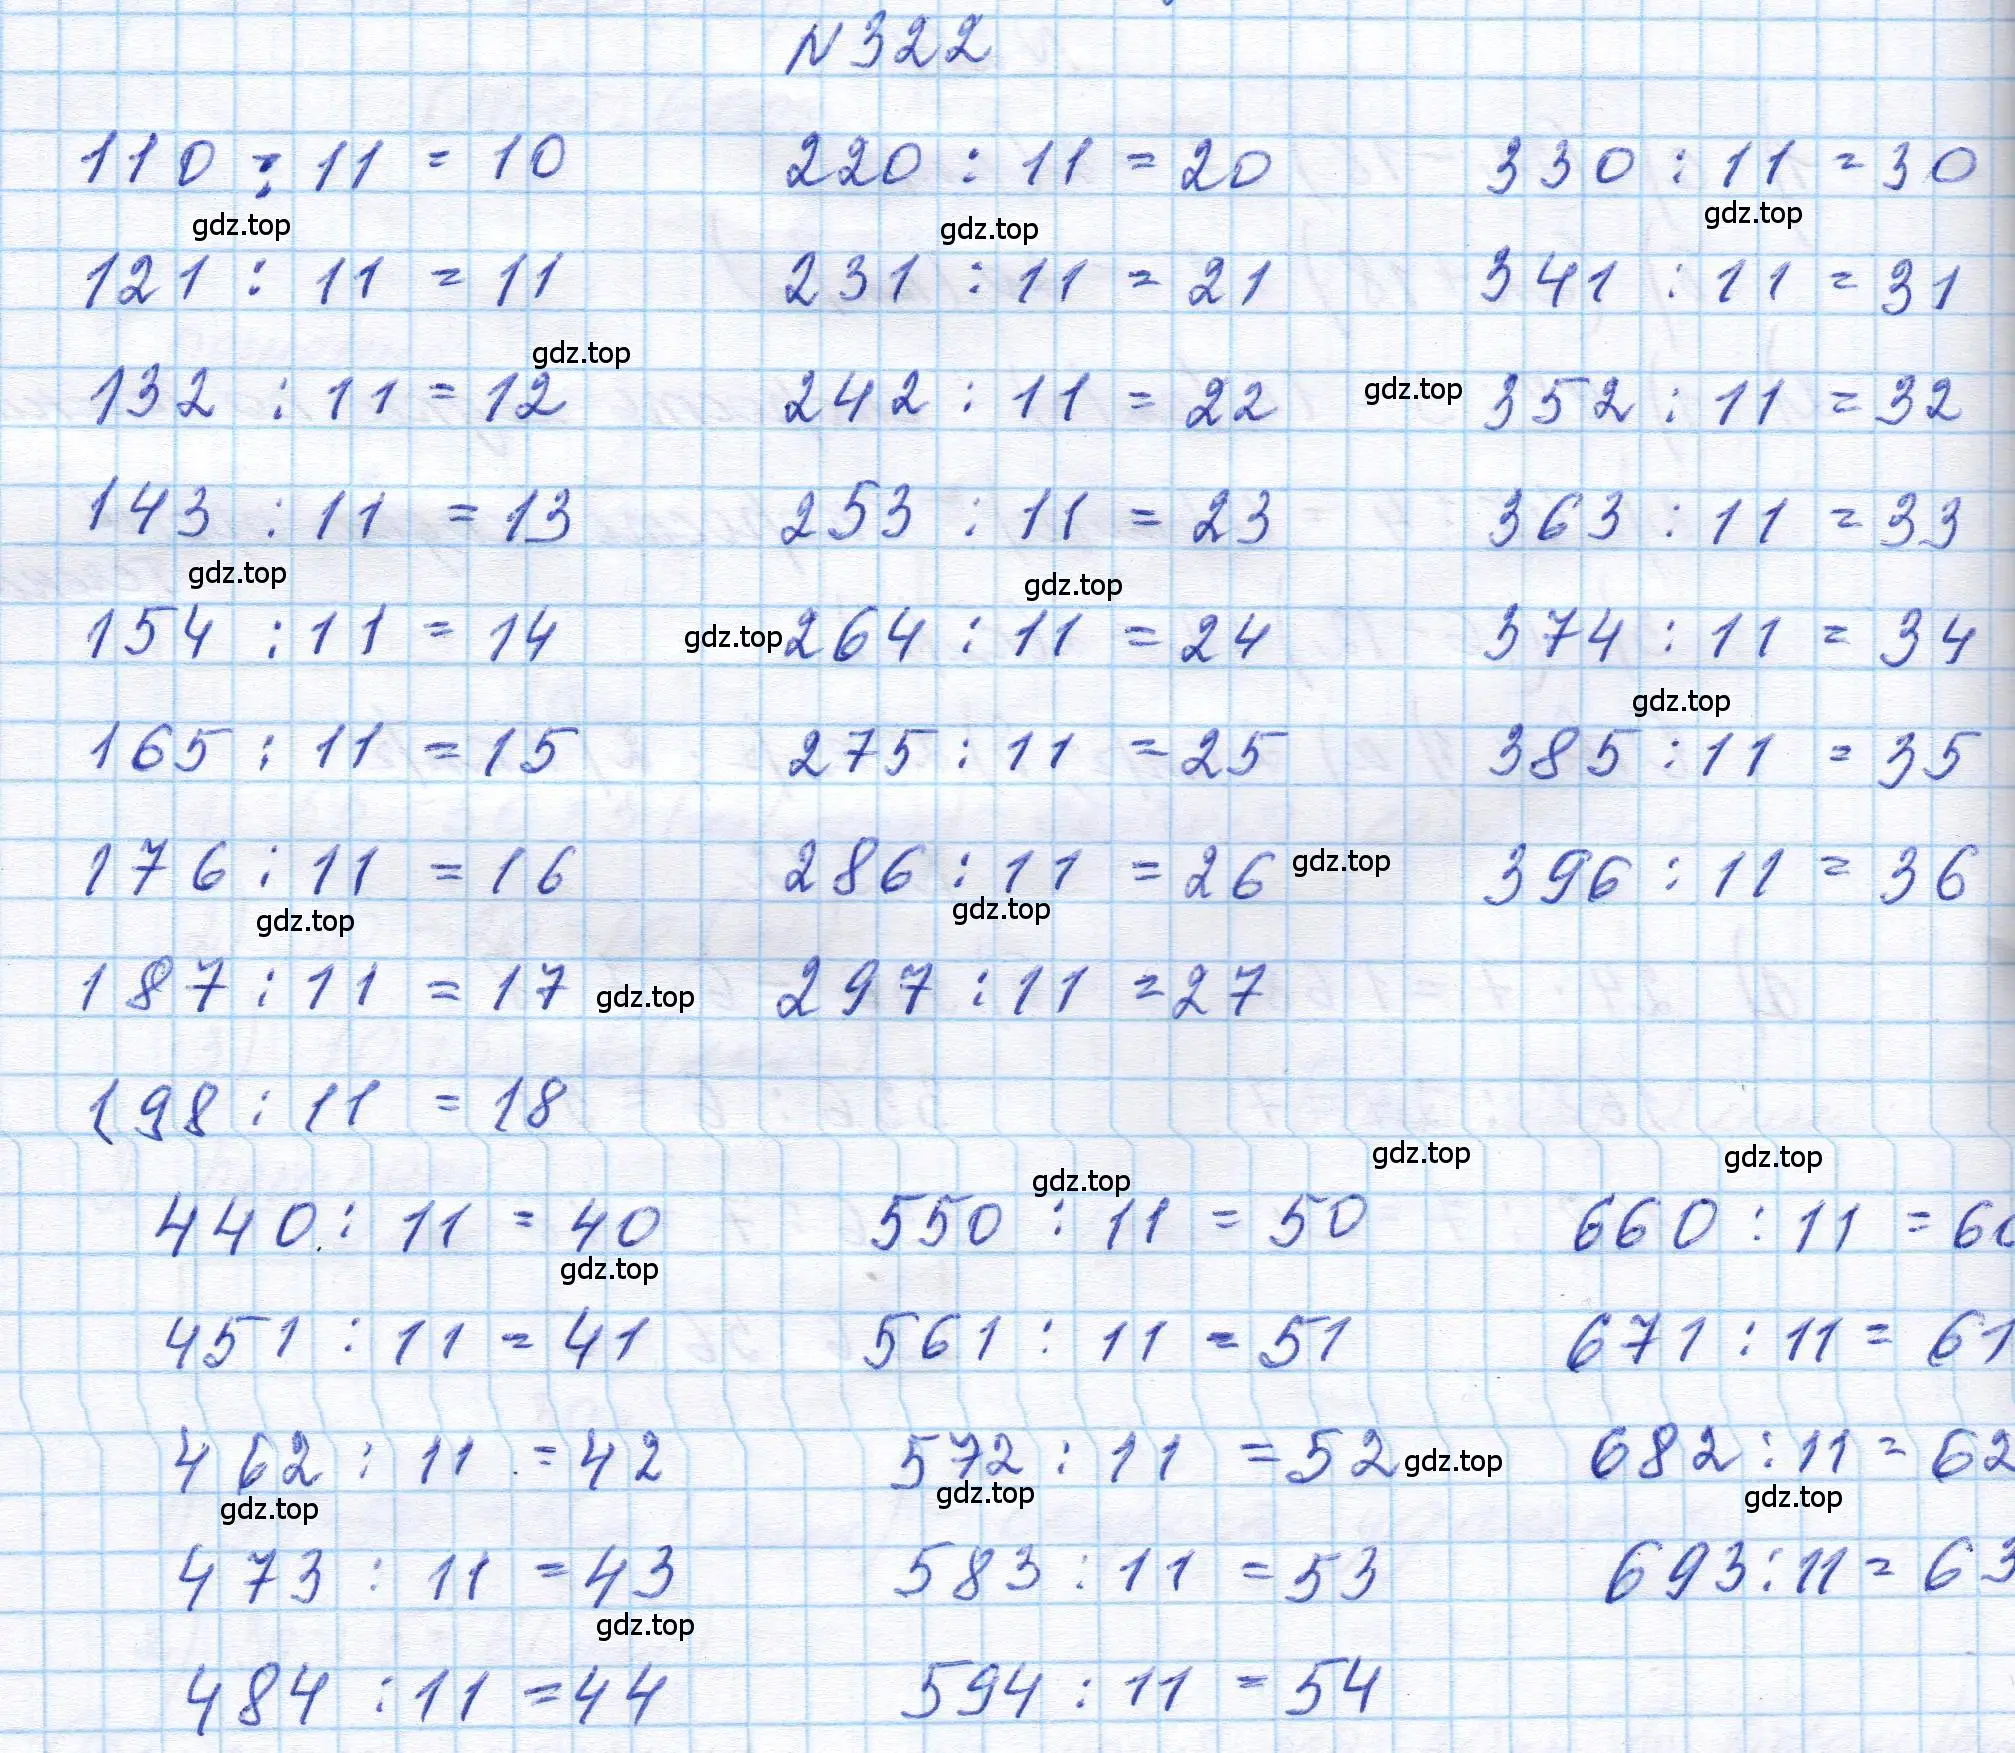 N 322
110 : 11 = 10 220 : 11 = 20 330 : 11 = 30
gdz.top gdz.top gdz.top
121 : 11 = 11 231 : 11 = 21 341 : 11 = 31
gdz.top
132 : 11 = 12 242 : 11 = 22 gdz.top 352 : 11 = 32
143 : 11 = 13 253 : 11 = 23 363 : 11 = 33
gdz.top gdz.top
154 : 11 = 14 gdz.top 264 : 11 = 24 374 : 11 = 34
gdz.top
165 : 11 = 15 275 : 11 = 25 385 : 11 = 35
176 : 11 = 16 286 : 11 = 26 gdz.top 396 : 11 = 36
gdz.top gdz.top
187 : 11 = 17 gdz.top 297 : 11 = 27
198 : 11 = 18
gdz.top gdz.top gdz.top
440 : 11 = 40 550 : 11 = 50 660 : 11 = 60
gdz.top
451 : 11 = 41 561 : 11 = 51 671 : 11 = 61
462 : 11 = 42 572 : 11 = 52 gdz.top 682 : 11 = 62
gdz.top gdz.top gdz.top
473 : 11 = 43 583 : 11 = 53 693 : 11 = 63
gdz.top
484 : 11 = 44 594 : 11 = 54